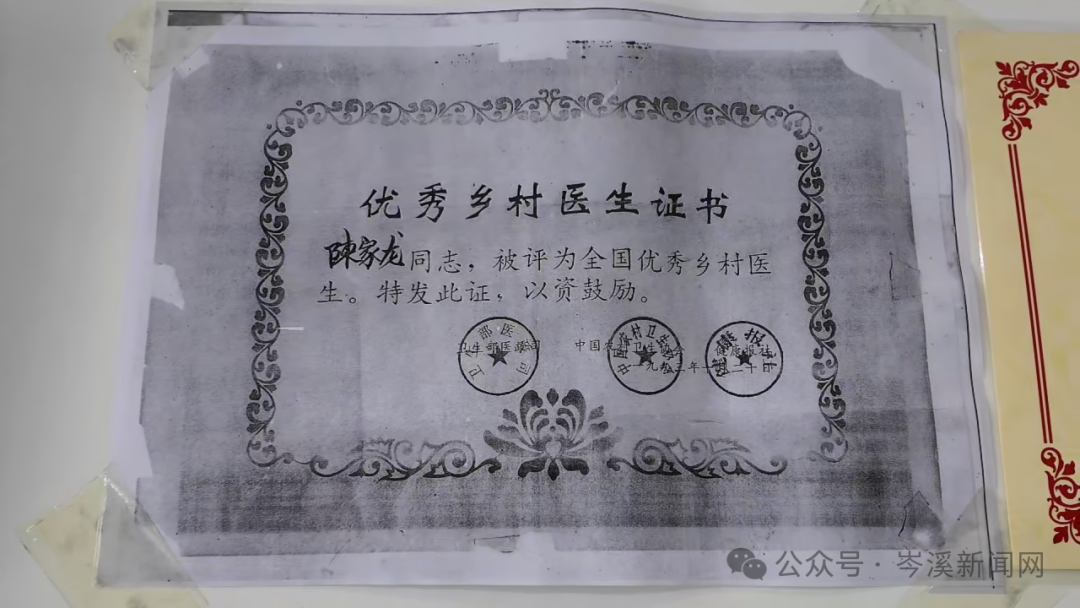 优秀乡村医生证书
陳家龙同志，被评为全国优秀乡村医
生。特发此证，以资鼓励。
卫生部医政司 中国农村卫生协会 健康报社
一九九三年十二月二十日
公众号·岑溪新闻网